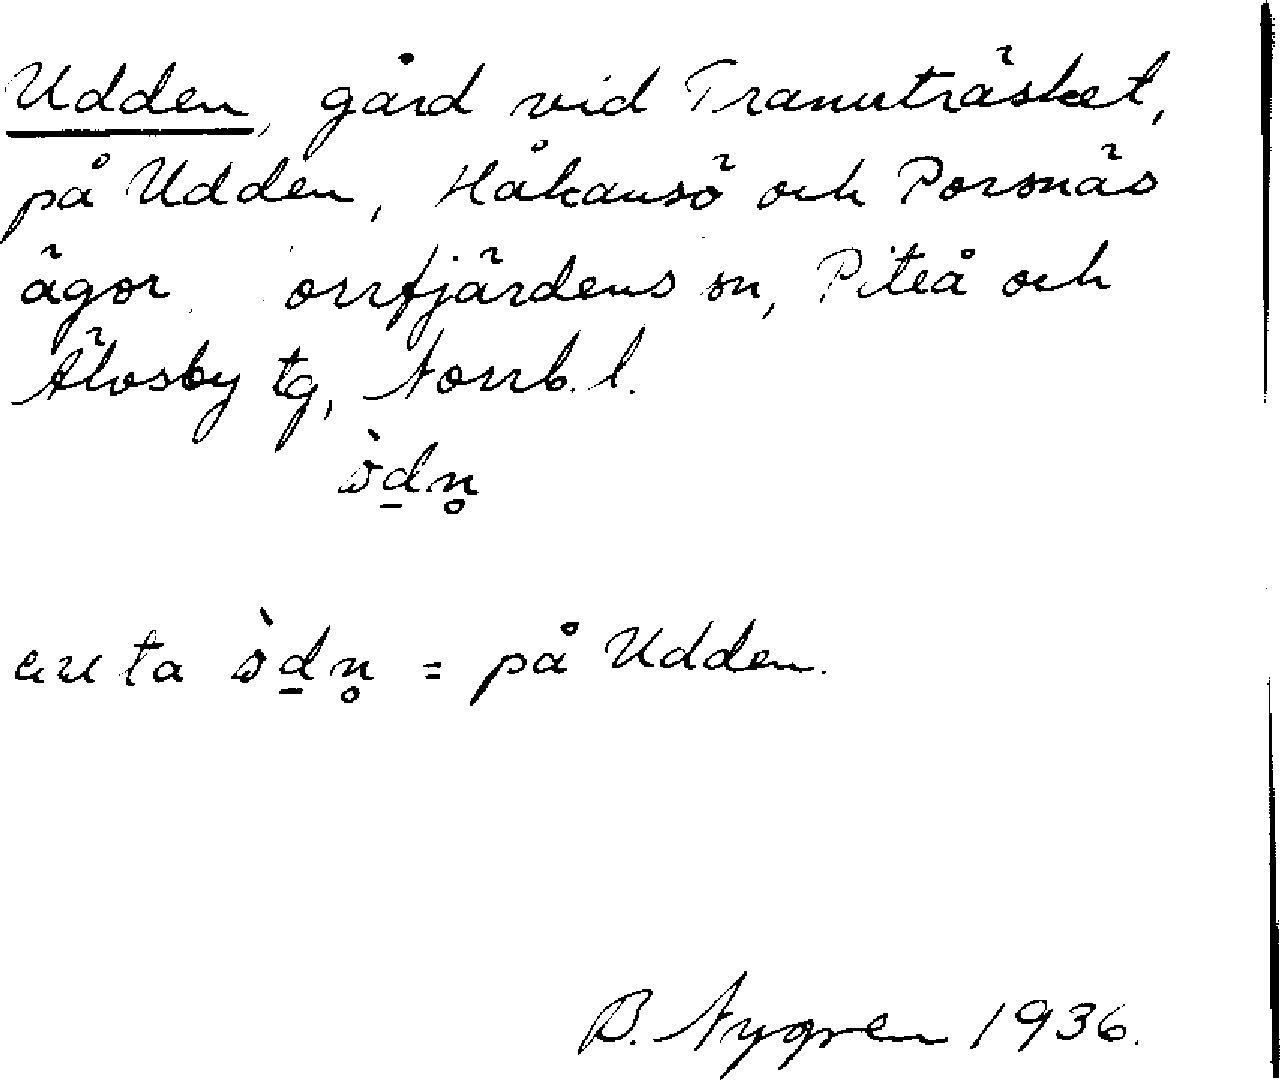 Udden, gård vid Tranuträsket,
på Udden, Håkansö och Porsnäs
ägor orrfjärdens sn, Piteå och
Älvsby tg, Norrb. l.
ò̀d̲n̥
ta ò̀d̲n̥ = på Udden.
B. Nygren 1936.